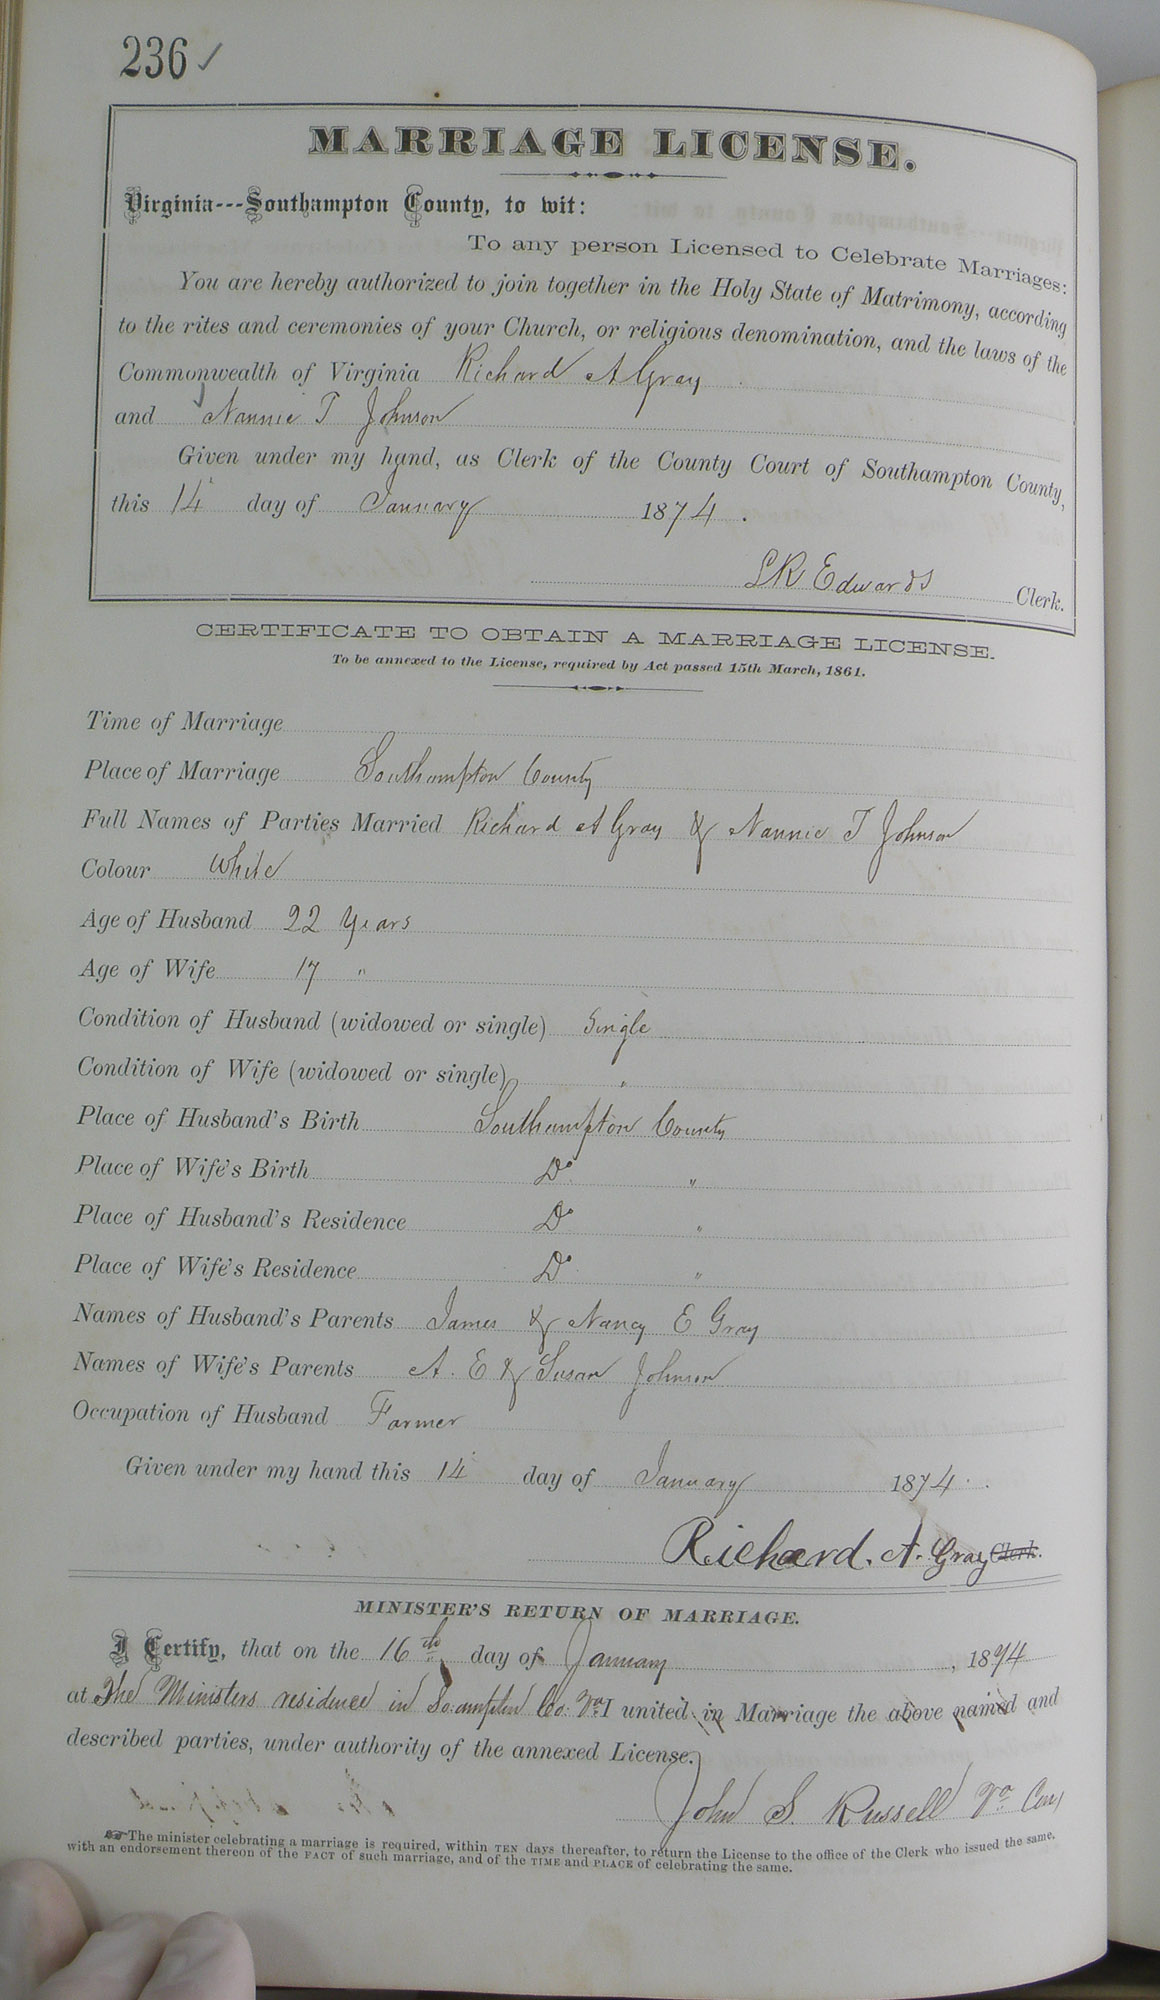 236 ✓
MARRIAGE LICENSE.
Virginia---Southampton County, to wit:
To any person Licensed to Celebrate Marriages:
You are hereby authorized to join together in the Holy State of Matrimony, according
to the rites and ceremonies of your Church, or religious denomination, and the laws of the
Commonwealth of Virginia Richard A Gray
and Nannie T Johnson
Given under my hand, as Clerk of the County Court of Southampton County,
this 14 day of January 1874.
L R Edwards Clerk.
CERTIFICATE TO OBTAIN A MARRIAGE LICENSE.
To be annexed to the License, required by Act passed 15th March, 1861.
Time of Marriage
Place of Marriage Southampton County
Full Names of Parties Married Richard A Gray & Nannie T Johnson
Colour White
Age of Husband 22 Years
Age of Wife 17 "
Condition of Husband (widowed or single) Single
Condition of Wife (widowed or single) "
Place of Husband's Birth Southampton County
Place of Wife's Birth Do "
Place of Husband's Residence Do "
Place of Wife's Residence Do "
Names of Husband's Parents James & Nancy E Gray
Names of Wife's Parents A. E & Susan Johnson
Occupation of Husband Farmer
Given under my hand this 14 day of January 1874.
Richard. A. Gray Clerk.
MINISTER'S RETURN OF MARRIAGE.
I Certify, that on the 16th day of January, 1874
at The Ministers residence in So.ampton Co: Va I united in Marriage the above named and
described parties, under authority of the annexed License.
John S. Russell Va Con
The minister celebrating a marriage is required, within TEN days thereafter, to return the License to the office of the Clerk who issued the same,
with an endorsement thereon of the FACT of such marriage, and of the TIME and PLACE of celebrating the same.